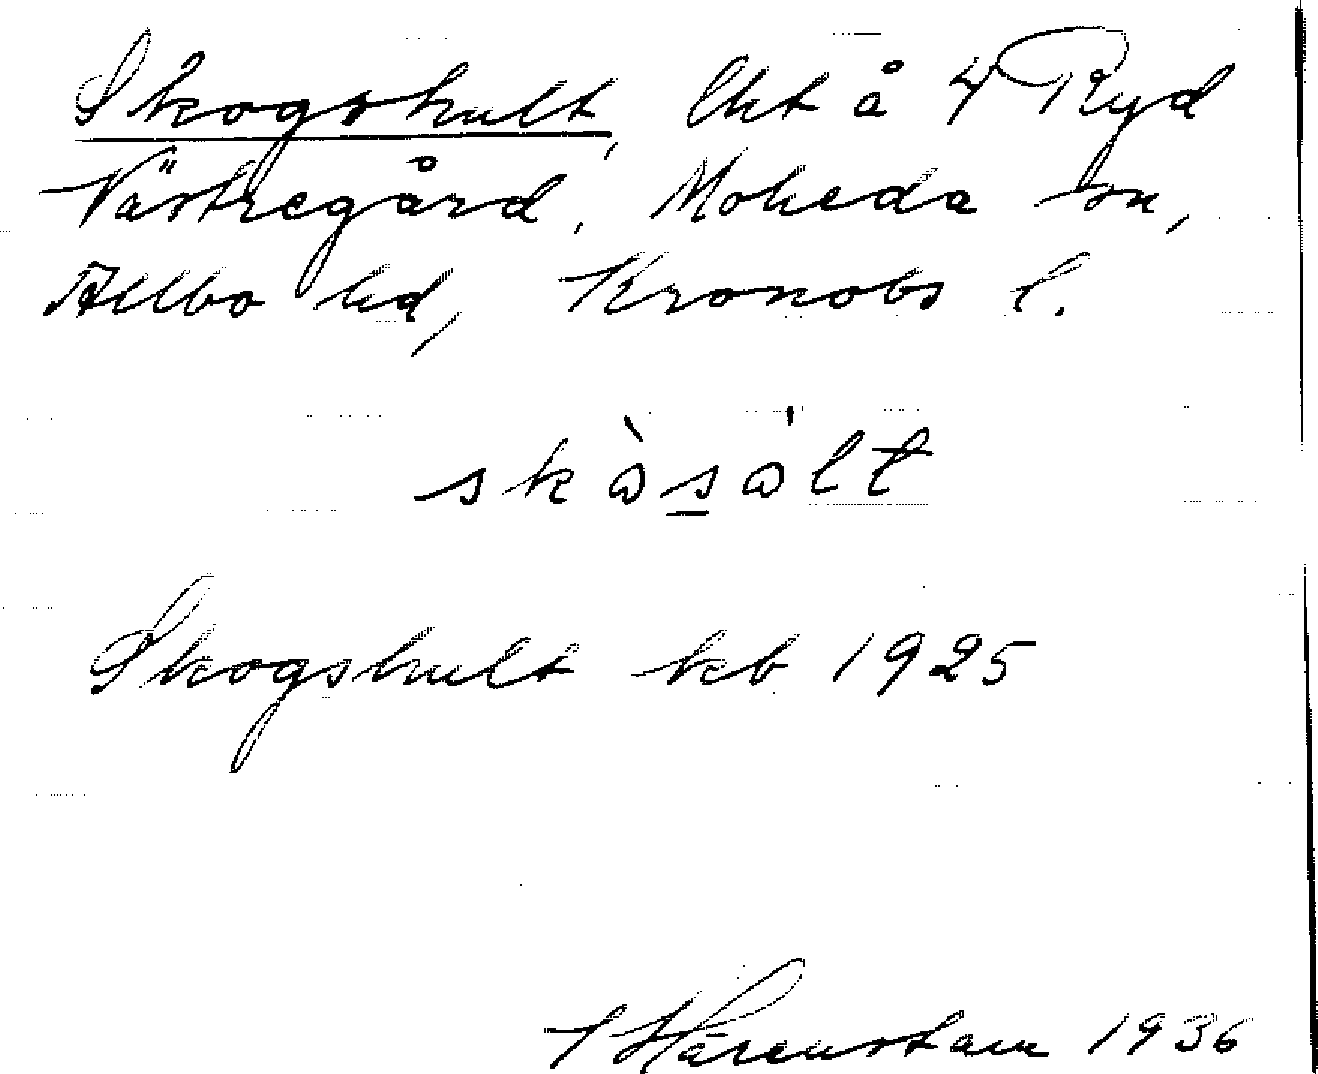 Skogshult, lht å 4 Ryd
Västregård, Moheda sn,
Allbo hd, Kronobs l.
skɷ̀sɷ̍lt
Skogshult kb 1925
Härenstam 1936